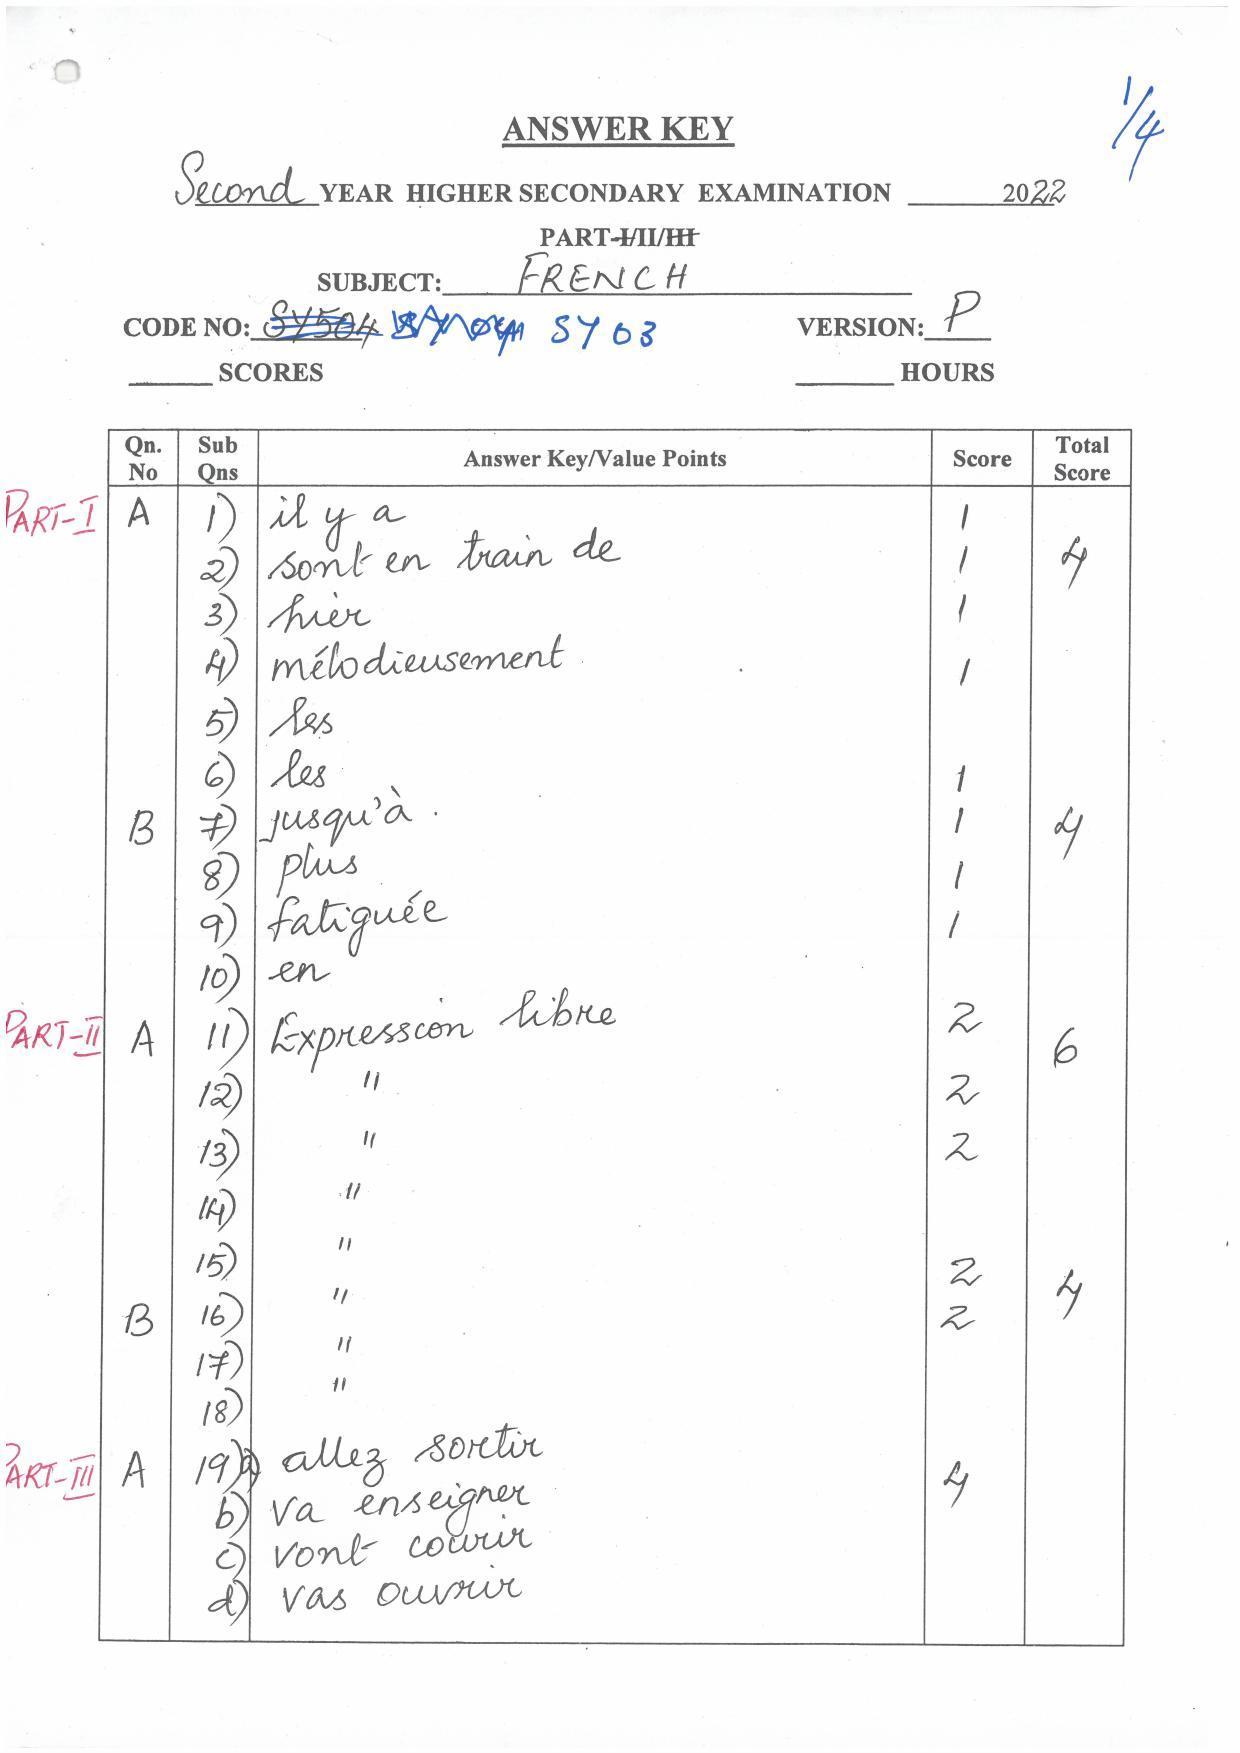 1/4
ANSWER KEY
Second YEAR HIGHER SECONDARY EXAMINATION 2022
PART-I/II/III
SUBJECT: FRENCH
CODE NO: SY504 SY03 VERSION: P
SCORES HOURS
Qn. No Sub Qns Answer Key/Value Points Score Total Score
PART-I A 1) il y a 1
2) sont en train de 1 4
3) hier 1
4) mélodieusement 1
5) les
6) les 1
B 7) jusqu'à. 1 4
8) plus 1
9) fatiguée 1
10) en
PART-II A 11) Expression libre 2 6
12) " 2
13) " 2
14) "
15) " 2
B 16) " 2 4
17) "
18) "
PART-III A 19) a) allez sortir 4
b) va enseigner
c) vont courir
d) vas ouvrir